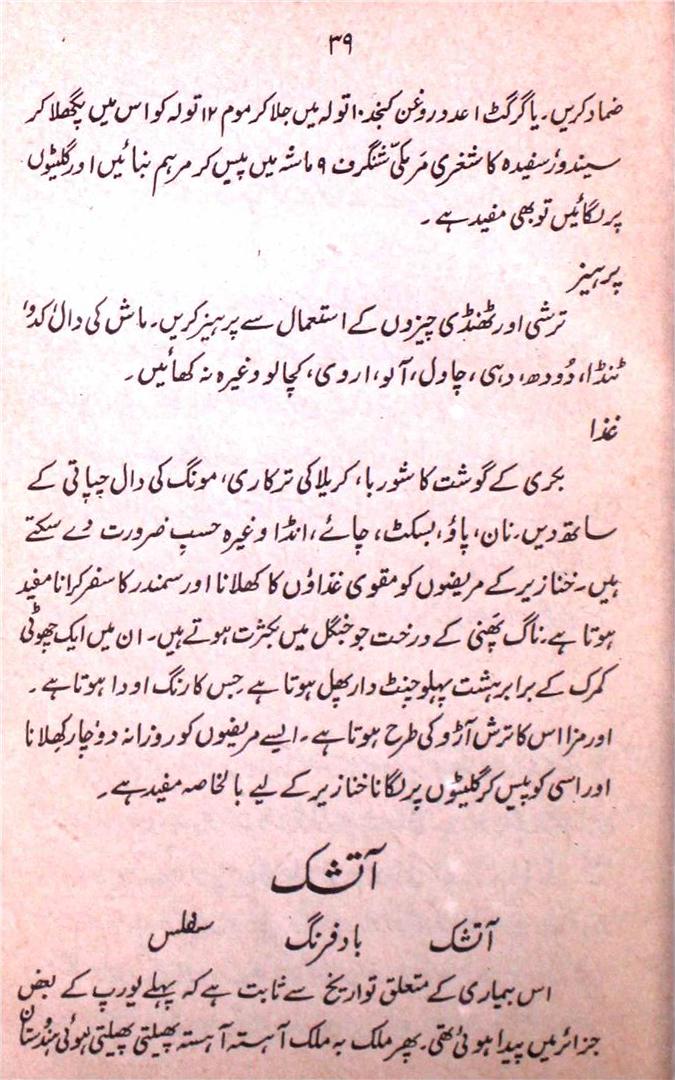 ۳۹
ضماد کریں۔ یا گرگٹ ۱ عدد روغن کنجد ۱۰ تولہ میں جلا کر موم ۱۲ تولہ کو اس میں پگھلا کر
سیندور سفیدہ کاشغری مر مکیّ شنگرف ۹ ماشہ میں پیس کر مرہم بنائیں اور گلیٹوں
پر لگائیں تو بھی مفید ہے ۔
پرہیز
ترشی اور ٹھنڈی چیزوں کے استعمال سے پرہیز کریں۔ ماش کی دال، کدو،
ٹنڈا، دُودھ، دہی، چاول، آلو، اروی، کچالو وغیرہ نہ کھائیں ۔
غذا
بکری کے گوشت کا شوربا، کریلا کی ترکاری، مونگ کی دال چپاتی کے
ساتھ دیں۔ نان، پاؤ، بسکٹ، چائے، انڈا وغیرہ حسبِ ضرورت دے سکتے
ہیں۔ خنازیر کے مریضوں کو مقوی غذاؤں کا کھلانا اور سمندر کا سفر کرانا مفید
ہوتا ہے۔ ناگ پھَنی کے درخت جو جنگل میں بکثرت ہوتے ہیں۔ ان میں ایک چھوٹی
کمرک کے برابر ہشت پہلو چنٹ دار پھل ہوتا ہے جِس کا رنگ اودا ہوتا ہے ۔
اور مزا اس کا ترش آڑو کی طرح ہوتا ہے ۔ ایسے مریضوں کو روزانہ دو چار کِھلانا
اور اسی کو پیس کر گلیٹوں پر لگانا خنازیر کے لیے بالخاصہ مفید ہے ۔
آتشک
آتشک بادفرنگ سفلس
اس بیماری کے متعلق تواریخ سے ثابت ہے کہ پہلے یورپ کے بعض
جزائر میں پیدا ہوئی تھی۔ پھر ملک بہ ملک آہستہ آہستہ پھیلتی پھیلتی ہوئی ہندوستان